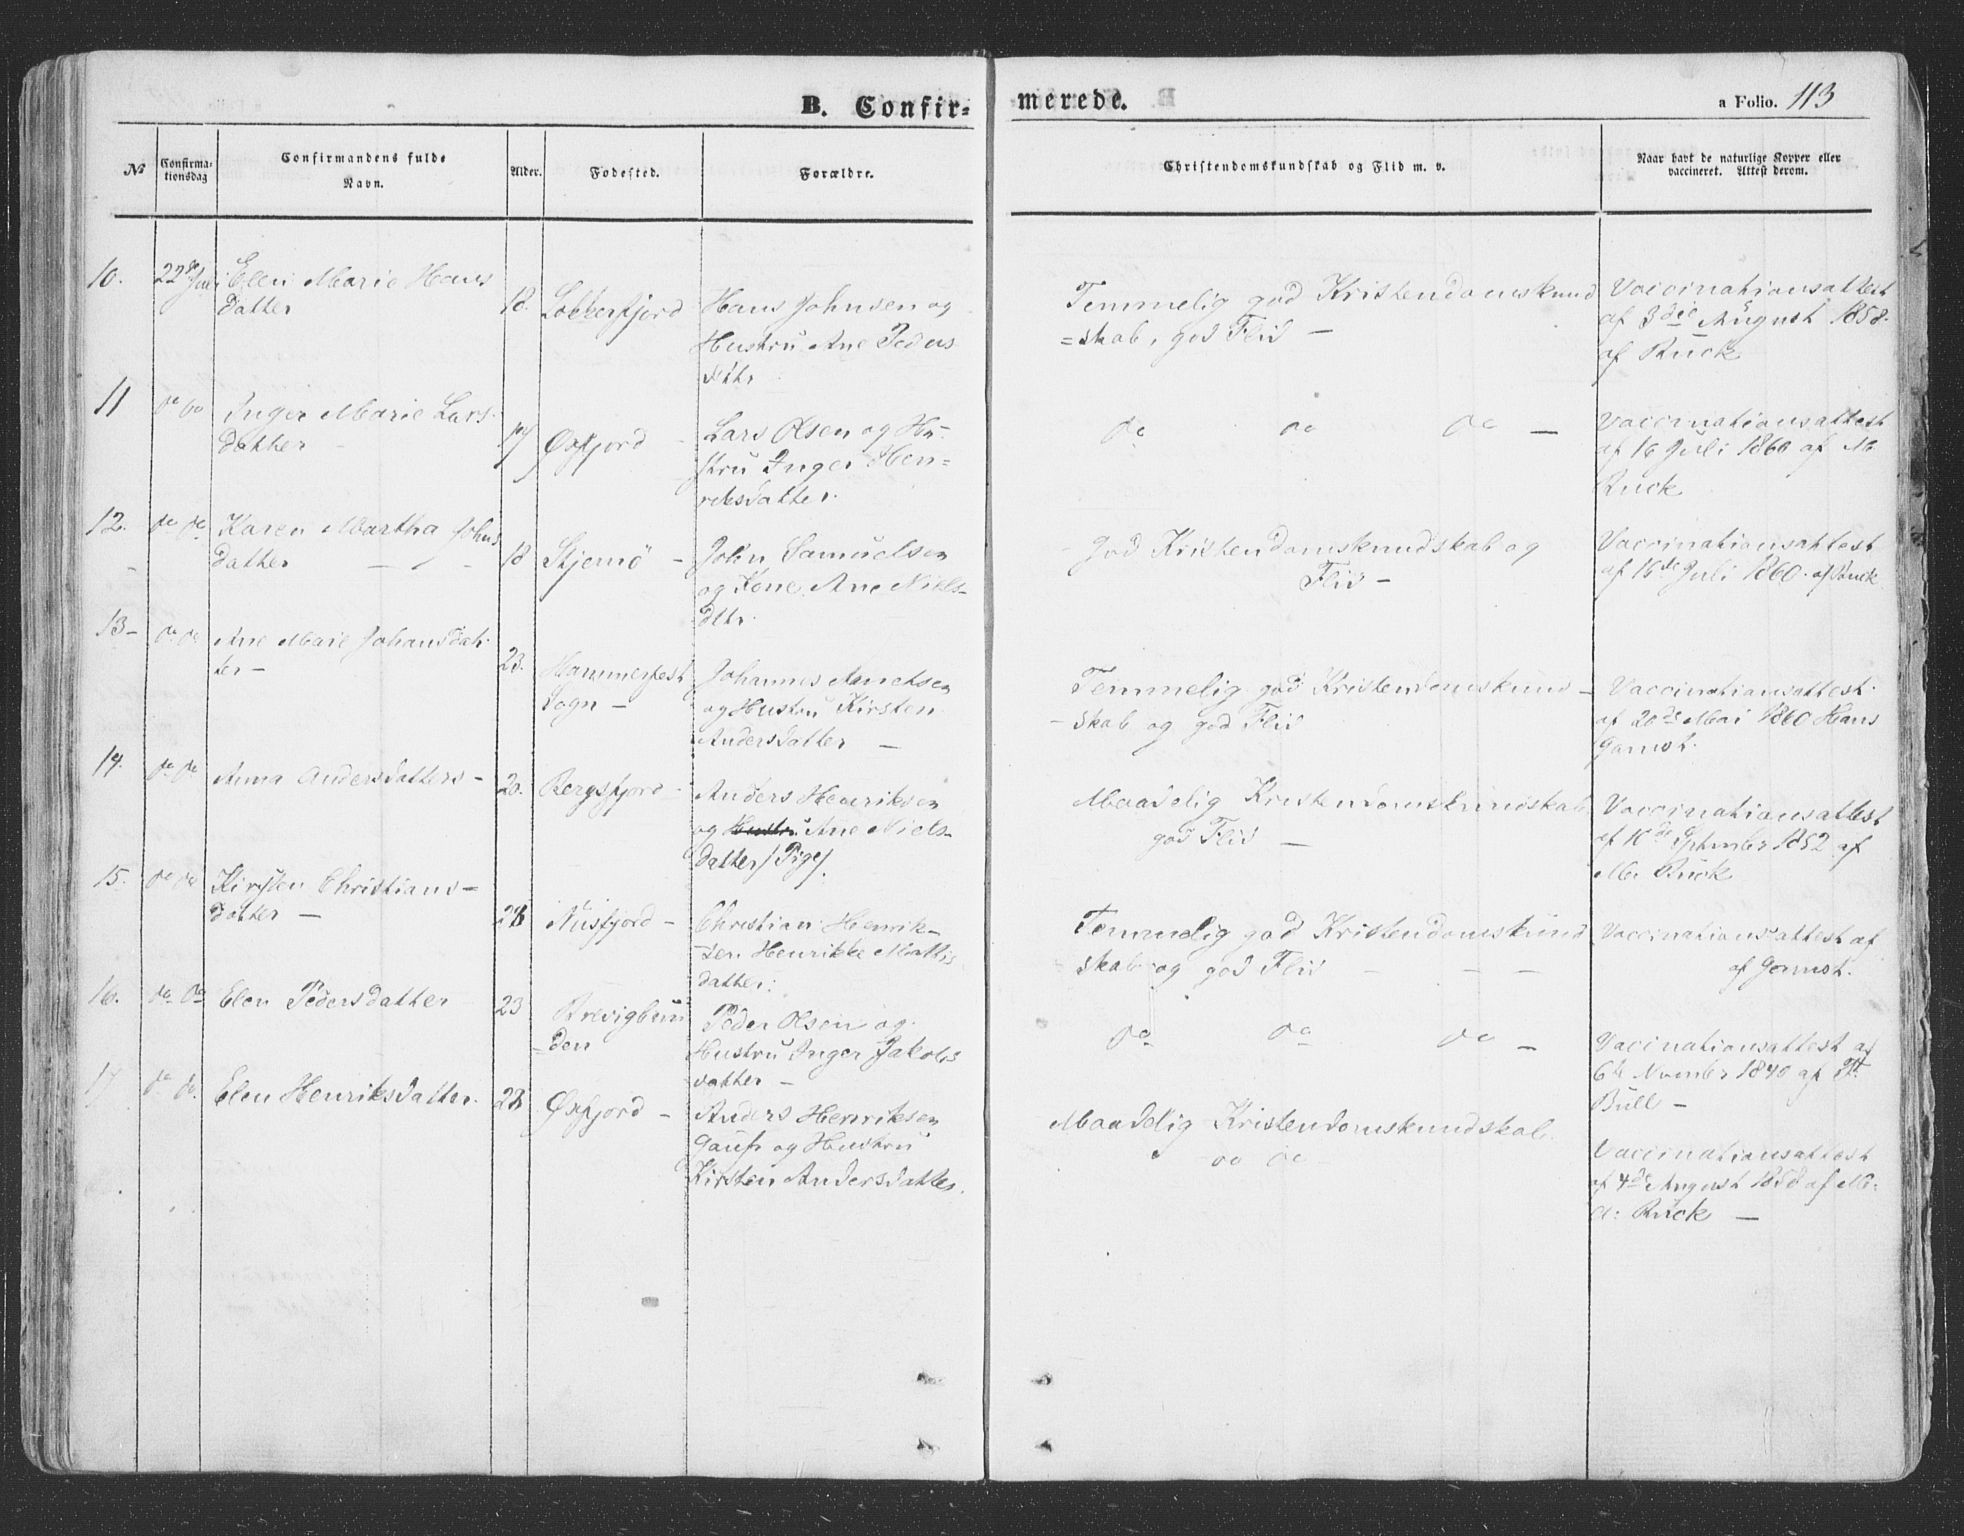 B. Confir=
merede.
a Folio. 113
№
Confirma-
tionsdag
Confirmandens fulde
Navn.
Alder.
Fødested.
Forældre.
Christendomskundskab og Flid m. v.
Naar havt de naturlige Kopper eller
vaccineret. Attest derom.
10.
22de Juli
Elen Marie Hans
datter
18.
Lokkerfjord
Hans Johnsen og
Hustru Ane Peders
dtr
Temmelig god Kristendomskund
=skab, god Flid —
Vaccinationsattest
af 3die August 1858.
af Ruck
11
do do
Inger Marie Lars-
datter
17
Øxfjord
Lars Olsen og Hu-
stru Inger Hen=
riksdatter.
do do do —
Vaccinationsattest
af 16 Juli 1860 af M.
Ruck
12.
do do
Karen Martha Johns
datter
18
Stjernö —
John Samuelsen
og Kone Ane Niels-
dtr.
God Kristendomskundskab og
Flid —
Vaccinationsattest
af 16de Juli 1860. af Ruck
13—
do do
Ane Marie Johansdat-
ter—
23.
Hammerfest
Sogn —
Johannes
og Hustru Kirsten
Andersdatter —
Temmelig god Kristendomskund-
-skab og god Flid
Vaccinationsattest
af 20de Mai 1860 Hans
14.
do do
Anna Andersdatter
20.
Bergsfjord
Anders Henriksen
og Hustru Ane Niels-
datter/Pige/.
Maadelig Kristendomskundskab
god Flid —
Vaccinationsattest
af 10de September 1852 af
M. Ruck
15.
do do
Kirsten Christians=
datter —
28
Nusfjord —
Christian Henrik-
sen Henrikke Mattis
datter.
Temmelig god Kristendomskund
skab og god Flid — — —
Vaccinationsattest af
af
16.
do do
Elen Pedersdatter
23
Brevigbun
=den
Peder Olsen og
Hustru Inger Jakobs
datter —
do do do —
Vacinationsattest af
6te November 1840 af
Bull —
17
do do.
Elen Henriksdatter.
28
Øxfjord —
Anders Henriksen
Gaup og Hustru
Kirsten Andersdatter.
Maadelig Kristendomskundskab.
do do
Vaccinationsattest
af 4de August 1858 af M.
A: Ruck —